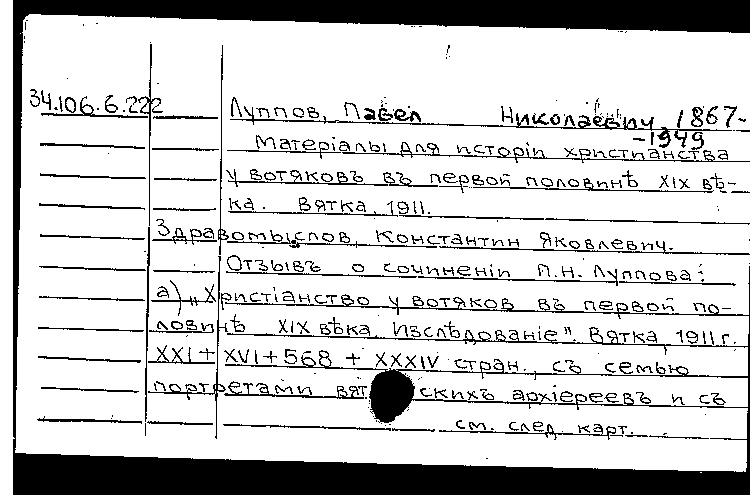 34.106.6.222 Луппов, Павел Николаевич, 1867-
-1949
Матеріалы для исторіи христианства
у вотяковъ въ первой половинѣ XIX вѣ-
ка. Вятка, 1911.
Здравомыслов, Константин Яковлевич.
Отзывъ о сочиненіи П.Н. Луппова:
а) „Христіанство у вотяков въ первой по-
ловинѣ XIX вѣка. Изслѣдованіе". Вятка, 1911 г.
XXI + XVI + 568 + XXXIV стран., съ семью
портретами вят скихъ архіереевъ и съ
см. след. карт.